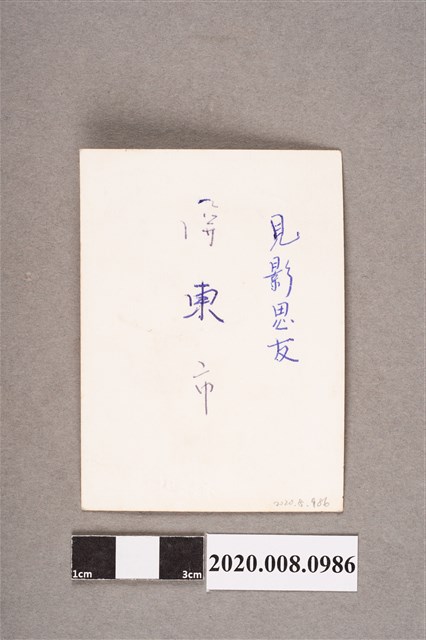 見影思友
屏東市
2020.8.986
1cm
3cm
2020.008.0986